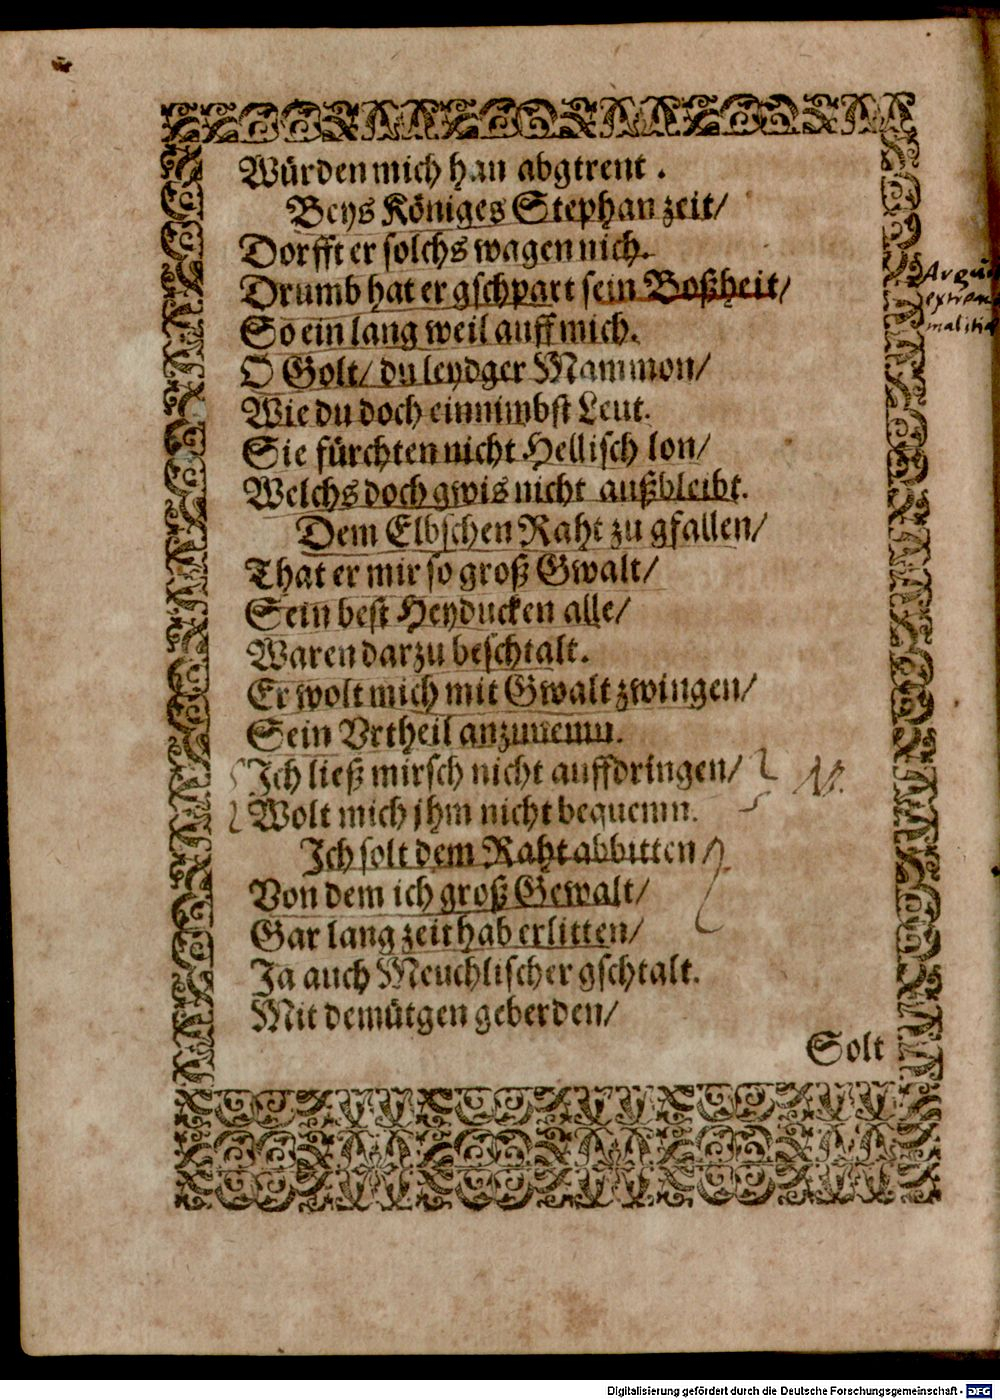 Würden mich han abgtrent.
Beys Königes Stephan zeit/
Dorfft er solchs wagen nich.
Drumb hat er gschpart sein Boßheit/
So ein lang weil auff mich.
O Golt/ du leydger Mammon/
Wie du doch einnimbst Leut.
Sie fürchten nicht Hellisch lon/
Welchs doch gwis nicht außbleibt.
Dem Elbschen Raht zu gfallen/
That er mir so groß Gwalt/
Sein best Heyducken alle/
Waren darzu beschtalt.
Er wolt mich mit Gwalt zwingen/
Sein Vrtheil anzunemn.
Ich ließ mirsch nicht auffdringen/
Wolt mich jhm nicht bequemn.
Ich solt dem Raht abbitten/
Von dem ich groß Gewalt/
Gar lang zeit hab erlitten/
Ja auch Meuchlischer gschtalt.
Mit demütgen geberden/
Solt
malitia
Digitalisierung gefördert durch die Deutsche Forschungsgemeinschaft - DFG